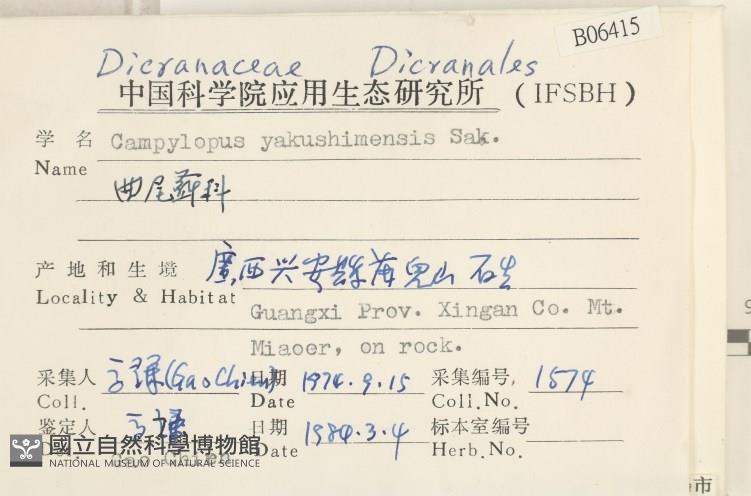 B06415
Dicranaceae Dicranales
中国科学院应用生态研究所 (IFSBH)
学名 Campylopus yakushimensis Sak.
Name
曲尾藓科
产地和生境 廣西兴安縣苗兒山 石生
Locality & Habitat Guangxi Prov. Xingan Co. Mt.
Miaoer, on rock.
采集人 高謙(Gao Chien) 日期 1974.9.15 采集编号, 1574
Coll. Date Coll.No.
鉴定人 高謙 日期 1984.3.4 标本室编号
Gao Chien Date Herb.No.
國立自然科學博物館
NATIONAL MUSEUM OF NATURAL SCIENCE
市